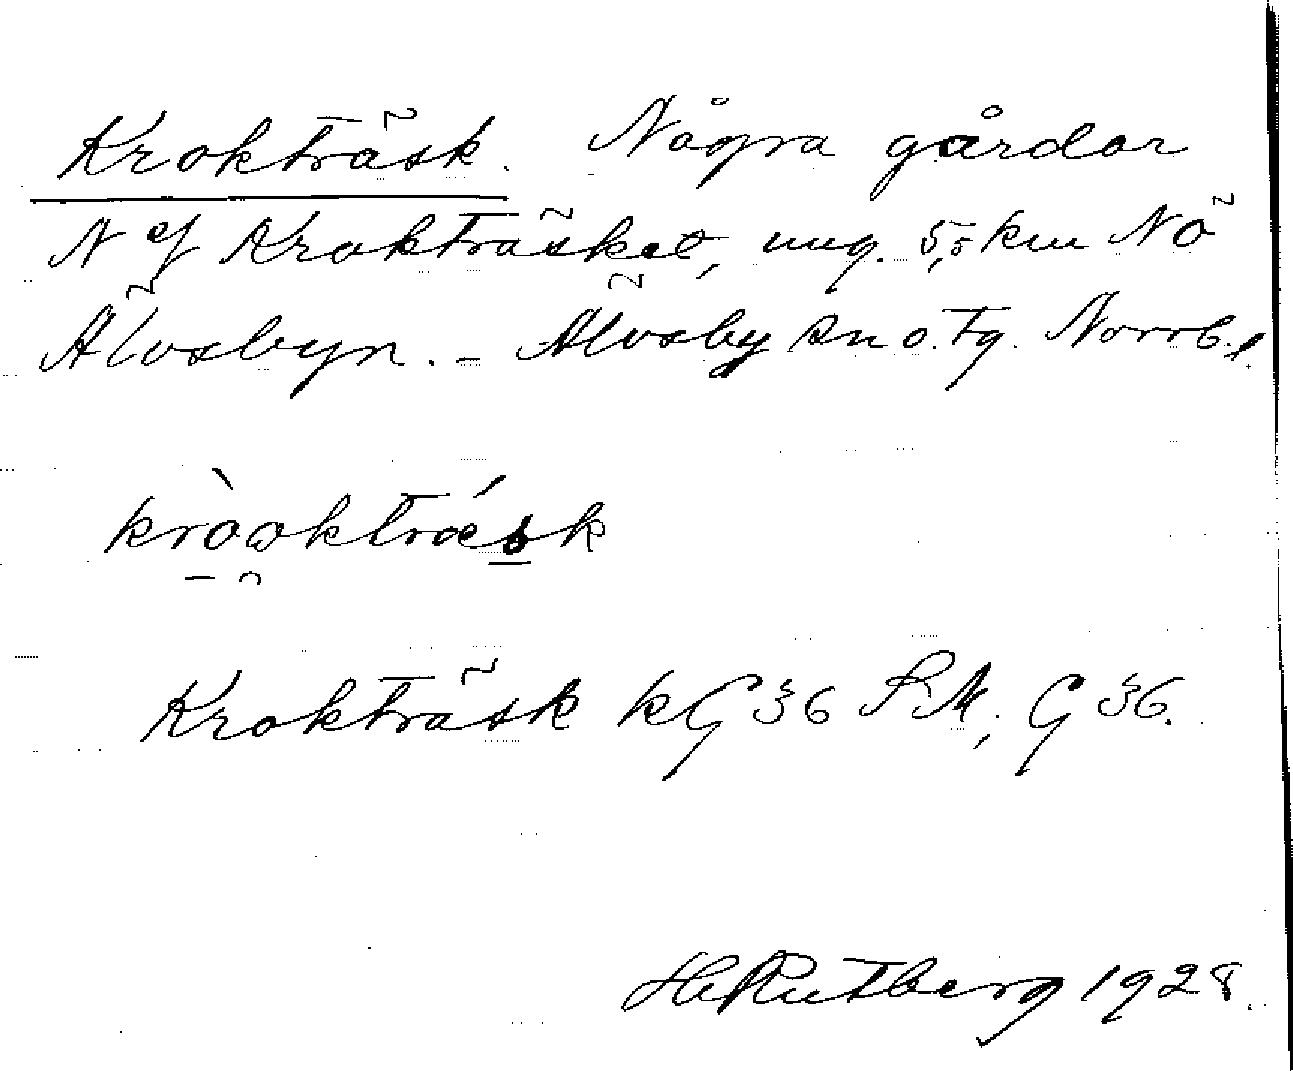 Krokträsk. Några gårdar
N of Kroktrasket, ung. 5,5 km NÖ
Älvsbyn. – Älvsby sn o. tg. Norrb. l.
kròoktræ´sk
Krokträsk kG 36 SK, G 36.
H Rutberg 1928.